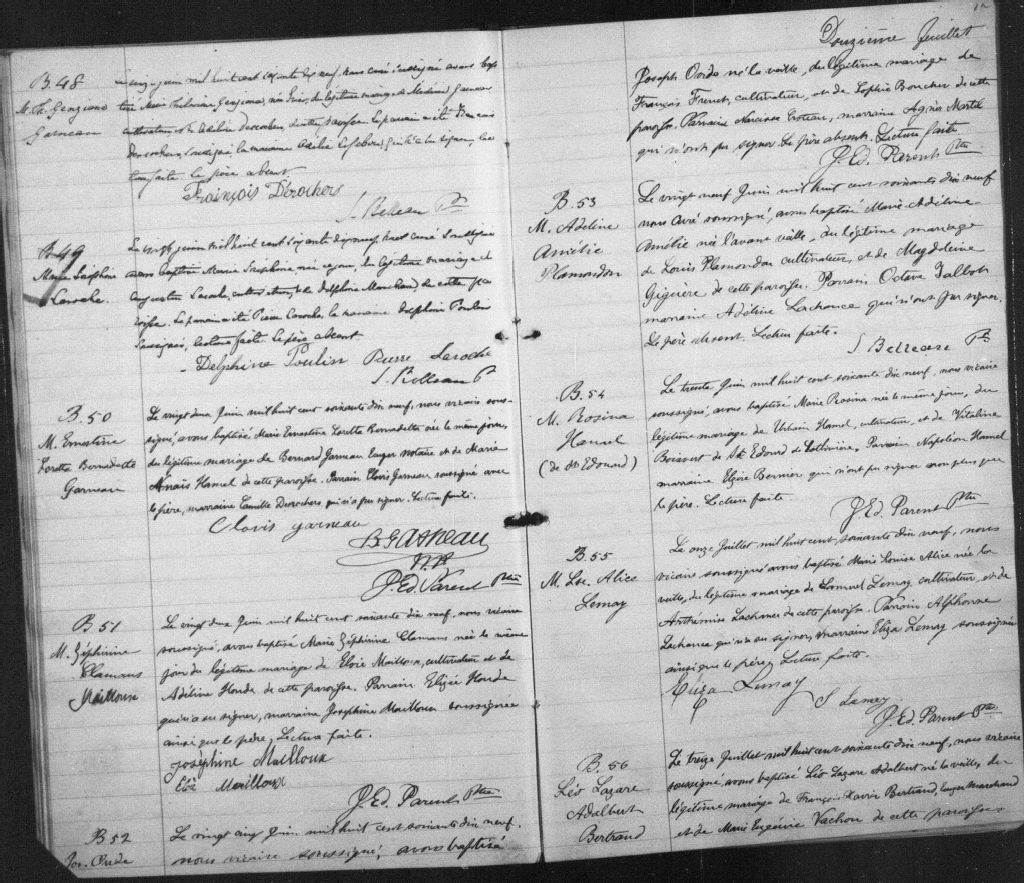 B. 48
M. Th. Genziana
Garneau
juin mil huit cent soixante dix neuf, nous curé soussigné avons bap
tisé Marie du légitime mariage de Garneau
cultivateur et de Adeline Desrochers, de cette paroisse. Le parrain a été François
Desrochers, soussigné, la marraine Lefebvre, qui n'a su signer. Lec
ture faite. Le père absent
François Desrochers
S. Belleau Ptre
B. 49
Marie Joséphine
Laroche
Le vingt juin mil huit cent soixante dix neuf, nous curé soussigné
avons baptisé Marie Joséphine, née ce jour, du légitime mariage de
Augustin Laroche, cultivateur, et de Delphine de cette pa
roisse. Le parrain a été Pierre Laroche, la marraine Delphine Poulin
soussignés, lecture faite. Le père absent
Delphine Poulin Pierre Laroche
S. Belleau Ptre
B. 50
M. Ernestine
Loretta Bernadette
Garneau
Le vingt deux Juin mil huit cent soixante dix neuf, nous vicaire sous-
signé, avons baptisé Marie Ernestine Loretta Bernadette née le même jour,
du légitime mariage de Bernard Garneau Ecuyer notaire et de Marie
Anaïs Hamel de cette paroisse. Parrain Clovis Garneau soussigné avec
le père, marraine Camille Desrochers qui n'a pu signer. Lecture faite.
Clovis garneau
B. Garneau
N.P.
J. Ed. Parent Ptre
B. 51
M. Zéphirine
Clamans
Mailloux
Le vingt deux Juin mil huit cent soixante dix neuf, nous vicaire
soussigné, avons baptisé Marie Zéphirine Clamans née le même
jour du légitime mariage de Eloïe Mailloux, cultivateur et de
Adéline Houde de cette paroisse. Parrain Elizée Houde
qui n'a su signer, marraine Joséphine Mailloux soussignée
ainsi que le père, Lecture faite.
Joséphine Mailloux
Eloï Mailloux
J. Ed. Parent Ptre
B. 52
Jos. Onde
Le vingt cinq Juin mil huit cent soixante dix neuf.
nous vicaire soussigné, avons baptisé
12
Douzième feuillet
Joseph né la veille, du légitime mariage de
François Frenet, cultivateur, et de Sophie Boucher de cette
paroisse. Parrain Narcisse Croteau, marraine Agnès Martel
qui n'ont pu signer. Le père absent. Lecture faite
J. Ed. Parent Ptre
B. 53
M. Adéline
Amélie
Plamondon
Le vingt neuf Juin mil huit cent soixante dix neuf
nous Curé soussigné, avons baptisé Marie Adéline
Amélie née l'avant veille, du légitime mariage
de Louis Plamondon cultivateur, et de Magdeleine
Giguère de cette paroisse. Parrain Octave Talbot
marraine Adéline Lachance qui n'ont pu signer.
Le père absent. Lecture faite.
S. Belleau Ptre
B. 54
M. Rosina
Hamel
(de St Edouard)
Le trente Juin mil huit cent soixante dix neuf, nous vicaire
soussigné, avons baptisé Marie Rosina née le même jour, du
légitime mariage de Urbain Hamel, cultivateur, et de Vitaline
Boisvert de St Edouard de Lotbinière, Parrain Napoléon Hamel
marraine Elzire Bernier qui n'ont pu signer non plus que
le père. Lecture faite.
J. Ed. Parent Ptre
B. 55
M. Lse. Alice
Lemay
Le onze Juillet mil huit cent, soixante dix neuf, nous
vicaire soussigné avons baptisé Marie Louise Alice née la
veille, du légitime mariage de Lemay cultivateur, et de
Arthémise Lachance de cette paroisse. Parrain Alphonse
Lachance qui n'a su signer, marraine Eliza Lemay soussignée
ainsi que le père, Lecture faite.
Eliza Lemay
S Lemay
J. Ed. Parent Ptre
B. 56
Léo Lazare
Adalbert
Bertrand
Le treize Juillet mil huit cent soixante dix neuf, nous vicaire
soussigné, avons baptisé Léo Lazare Adalbert né la veille, du
légitime mariage de François Xavier Bertrand, Ecuyer Marchand
et de Marie Eugénie Vachon de cette paroisse